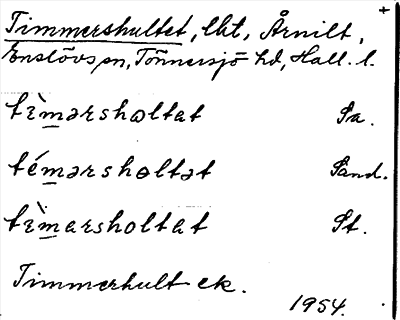 Timmershultet, lht, Årnilt, +
Enslövs sn, Tönnersjö hd, Hall. l.
tìmərshɷltat Sa.
témərshɵltət Sand.
tìmarshɷltat St.
Timmerhult ek.
1954.